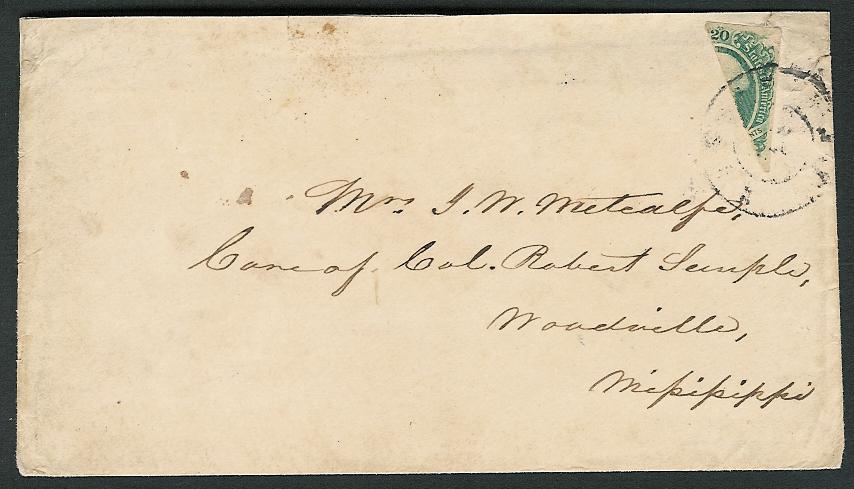 20
Mrs. J. W. Metcalfe,
Care of Col. Robert Semple,
Woodville,
Missisippi